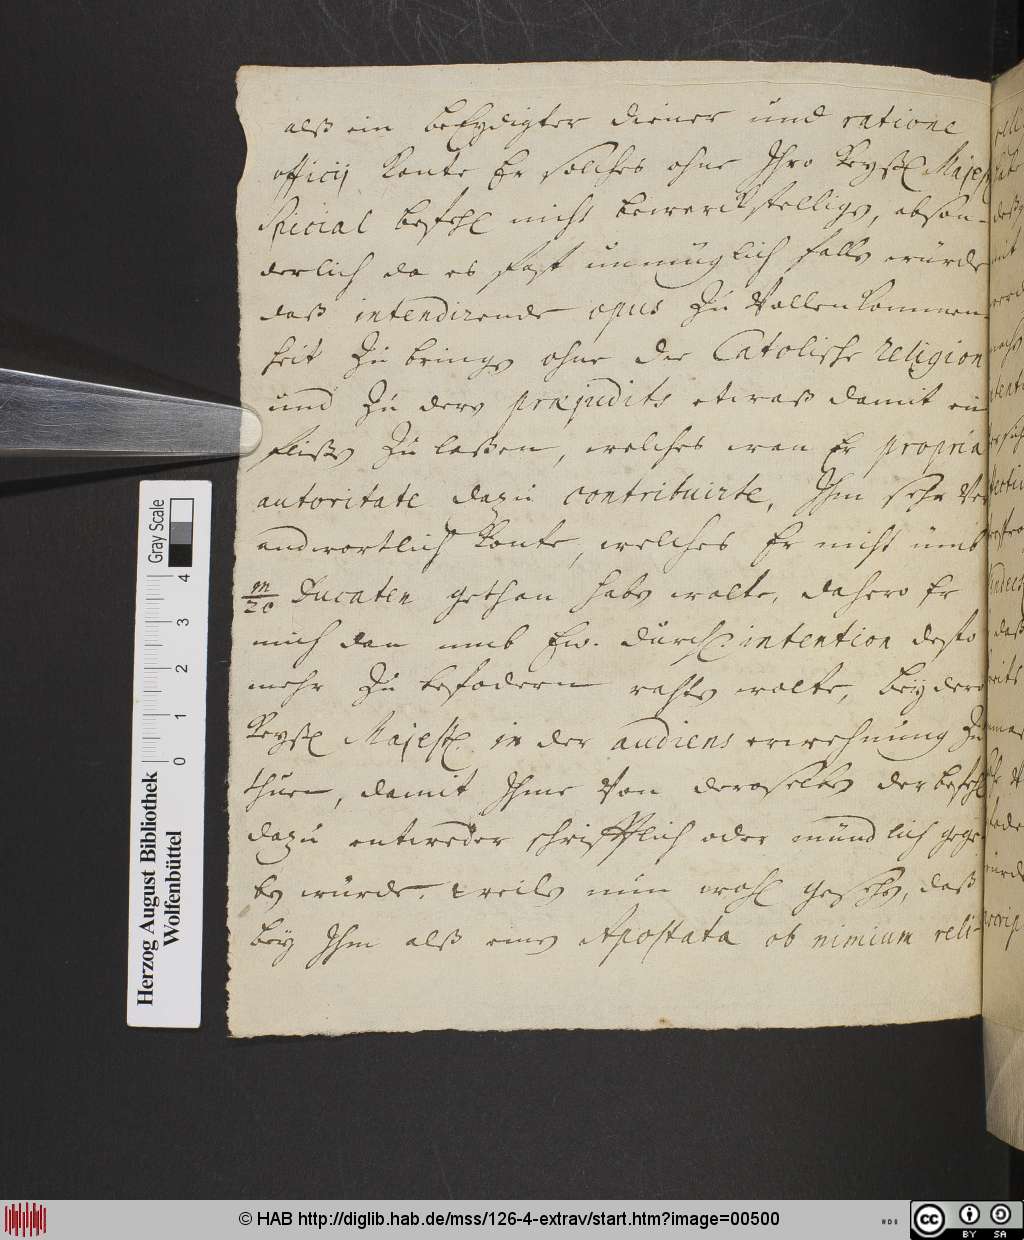 alß ein beEydigter diener und ratione
officij konte Er solches ohne Ihro Keyßl Majest
Special befehl nicht bewerckstellig, abson-
derlich da es fast unmüglich falln würde
daß intendirende opus zu Vollenkommen-
heit zu bringn ohne die Catolische religion
und zu dern præjudits etwaß damit ein
flißn zu laßen, welches wan Er propria
autoritate dazu contribuirte, Ihm sehr Ver
andwortlich konte, welches Er nicht umb
m/20 Ducaten gethan habn wolte, dahero Er
mich dan umb Ew. Durchl intention desto
mehr zu befodern rahtn wolte, beÿ dero
Keyßl Majest. in der audiens erwehnung zu
thuen, damit Ihme Von derselbn der befehl
dazu entweder schrifftlich oder mündlich gege-
bn würde. weiln nun wohl gesehn, daß
beÿ Ihm alß einn Apostata ob nimium reli-
Herzog August Bibliothek
Wolfenbüttel
Gray Scale
0 1 2 3 4
© HAB http://diglib.hab.de/mss/126-4-extrav/start.htm?image=00500
cc BY SA